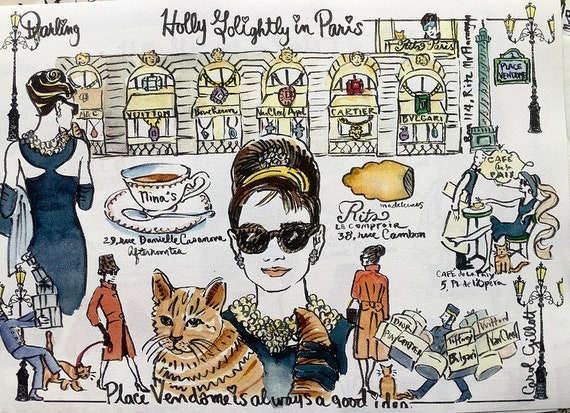 Darling
Holly Golightly in Paris
Ritz Paris
Rm 114, Ritz
PLACE
VENDOME
VUITTON
Boucheron
Van Cleef Arpel
CARTIER
BVLGARI
CAFÉ
de la
PAIX
Nina's
29, rue Danielle Casanova
afternoon tea
madeleines
Ritz
LE COMPTOIR
38, rue Cambon
CAFÉ de la PAIX
5, Pl. de l'Opéra
DIOR
Tiffany
Vuitton
Bvlgari
Van Cleef
Carol Gillott
Place Vendome is always a good idea.